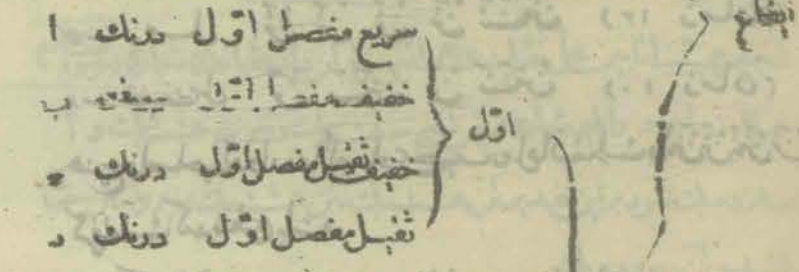 ايقاع
اوّل
سريع مفصل اوّل درنك ا
خفيف مفصل ب
خفيف ثقيل مفصل اوّل درنك
ثقيل مفصل اوّل درنك د